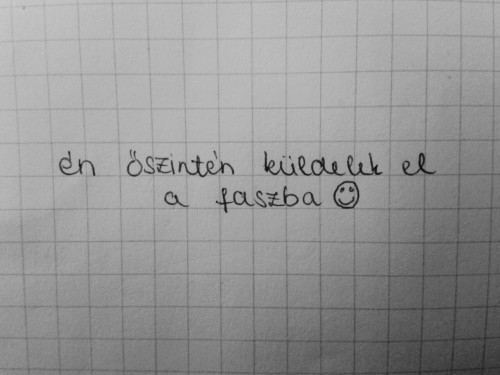 én őszintén küldelek el
a faszba ☺